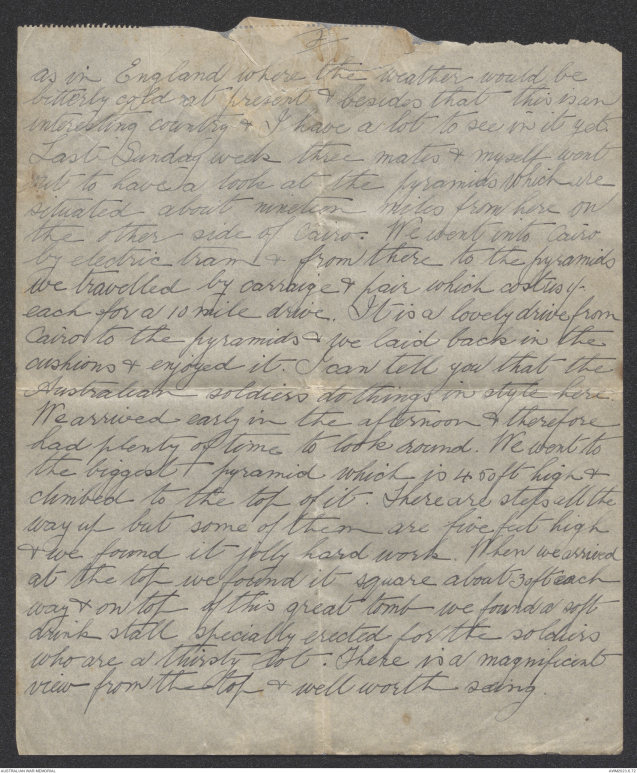 2
as in England where the weather would be
bitterly cold at present & besides that this is an
interesting country & I have a lot to see in it yet.
Last Sunday week three mates & myself went
out to have a look at the pyramids which are
situated about nineteen miles from here on
the other side of Cairo. We went into Cairo
by electric tram & from there to the pyramids
we travelled by carraige & pair which cost us
each for a 10 mile drive. It is a lovely drive from
Cairo to the pyramids & we laid back in the
cushions & enjoyed it. I can tell you that the
Australian soldiers do things in style here.
We arrived early in the afternoon & therefore
had plenty of time to look around. We went to
the biggest pyramid which is 450ft high &
climbed to the top of it. There are steps all the
way up but some of them are five feet high
& we found it jolly hard work. When we arrived
at the top we found it square about 30ft each
way & on top of this great tomb we found a soft
drink stall specially erected for the soldiers
who are a thirsty lot. There is a magnificent
view from the top & well worth seeing.
AUSTRALIAN WAR MEMORIAL